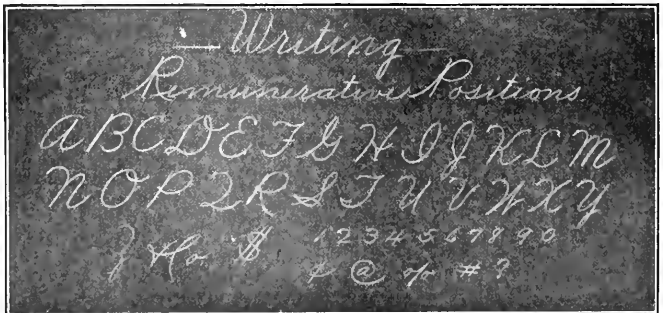 — Writing —
Remunerative Positions.
A B C D E F G H I J K L M
N O P Q R S T U V W X Y
Z $ 1 2 3 4 5 6 7 8 9 0
¢ @ % # ?